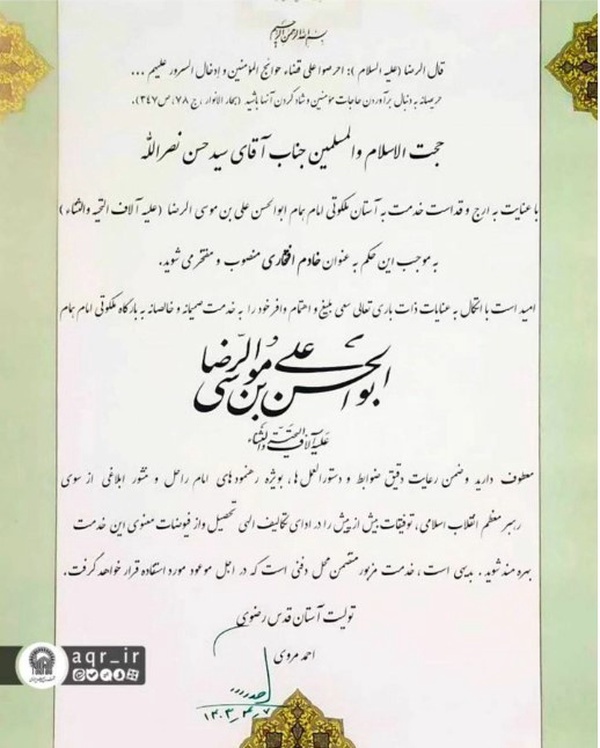 بسم الله الرحمن الرحیم
قال الرضا (علیه السلام): احرصوا علی قضاء حوائج المؤمنین و إدخال السرور علیهم ...
حریصانه به دنبال برآوردن حاجات مؤمنین و شاد کردن آنها باشید (بحار الانوار، ج ۷۸، ص ۳۴۷).
حجت الاسلام والمسلمین جناب آقای سید حسن نصرالله
با عنایت به ارج و قداست خدمت به آستان ملکوتی امام همام ابوالحسن علی بن موسی الرضا (علیه آلاف التحیه والثناء)
به موجب این حکم به عنوان خادم افتخاری منصوب و مفتخر می شوید.
امید است با اتکال به عنایات ذات باری تعالی سعی بلیغ و اهتمام وافر خود را به خدمت صمیمانه و خالصانه به بارگاه ملکوتی امام همام
ابوالحسن علی بن موسی الرضا
علیه آلاف التحیة والثناء
معطوف دارید و ضمن رعایت دقیق ضوابط و دستورالعمل ها، بویژه رهنمودهای امام راحل و منشور ابلاغی از سوی
رهبر معظم انقلاب اسلامی، توفیقات بیش از پیش را در ادای تکالیف الهی تحصیل و از فیوضات معنوی این خدمت
بهره مند شوید. بدیهی است، خدمت مزبور متضمن محل دفنی است که در اجل موعود مورد استفاده قرار خواهد گرفت.
تولیت آستان قدس رضوی
احمد مروی
۱۴۰۳_۴_۷
aqr_ir